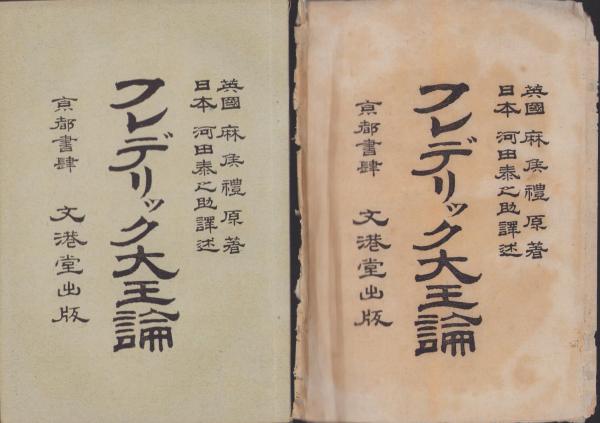 英國 麻侯禮 原著
日本 河田泰之助譯述
フレデリック大王論
京都書肆 文港堂出版
英國 麻侯禮 原著
日本 河田泰之助譯述
フレデリック大王論
京都書肆 文港堂出版